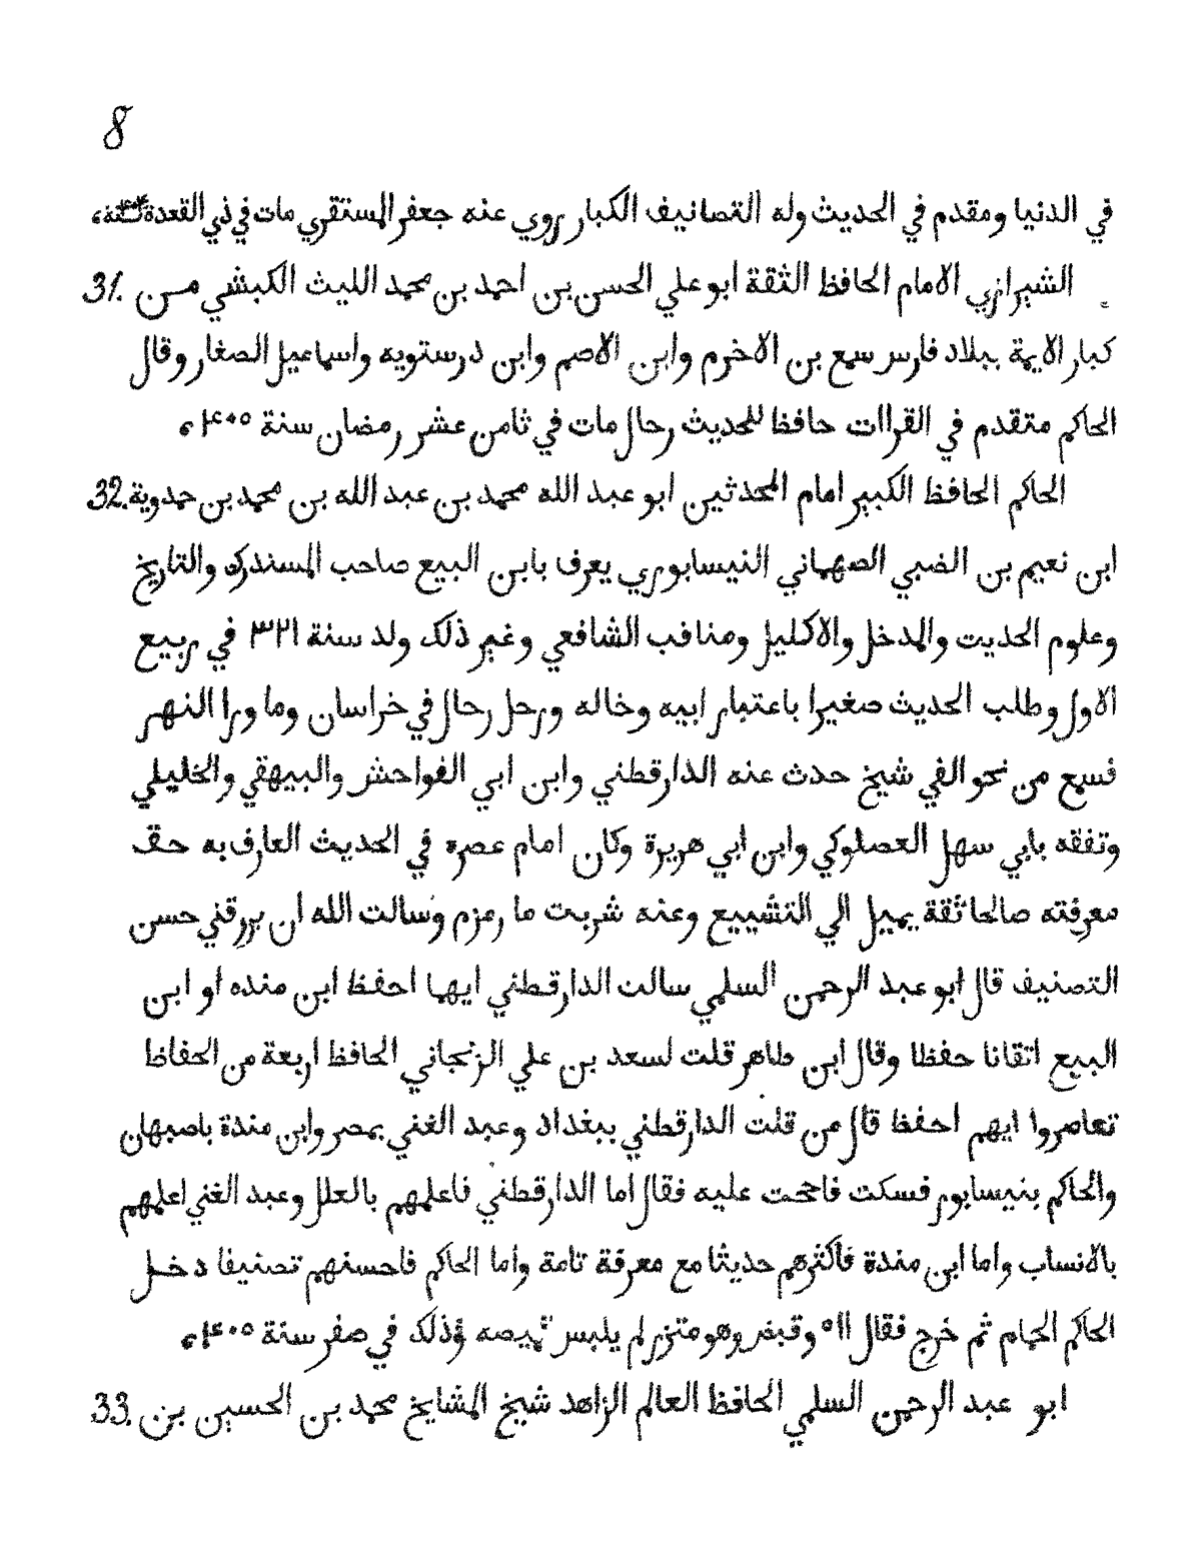 8
في الدنيا ومقدم في الحديث وله التصانيف الكبار روي عنه جعفر المستقري مات في ذي القعدة
31. الشيرازي الامام الحافظ الثقة ابو علي الحسن بن احمد بن محمد الليث الكبشي من
كبار الايمة ببلاد فارس سمع بن الاخرم وابن الاصم وابن درستويه واسماعيل الصغار وقال
الحاكم متقدم في القراات حافظا للحديث رحال مات في ثامن عشر رمضان سنة ۴۰۵ء
32. الحاكم الحافظ الكبير امام المحدثين ابو عبد الله محمد بن عبد الله بن محمد بن حدوية
ابن نعيم بن الضبي الصهماني النيسابوري يعرف بابن البيع صاحب المسندرك والتاريخ
وعلوم الحديت والمدخل والاكليل ومنافب الشافعي وغير ذلك ولد سنة ۳۲۱ في ربيع
الاول وطلب الحديث صغيرا باعتبار ابيه وخاله ورحل رحال في خراسان وما ورا النهر
فسمع من نحو الفي شيخ حدث عنه الدارقطني وابن ابي الفواحش والبيهقي والخليلي
وتفقه بابي سهل العصلوكي وابن ابي هريرة وكان امام عصره في الحديث العارف به حق
معرفته صالحا ثقة يميل الي التشييع وعنه شربت ما رمزم وسالت الله ان يرزقني حسن
التصنيف قال ابو عبد الرحمن السلمي سالت الدارقطني ايهما احفظ ابن منده او ابن
البيع اتقانا حفظا وقال ابن طاهر قلت لسعد بن علي الزنجاني الحافظ اربعة من الحفاظ
تعاصروا ايهم احفظ قال من قلت الدارقطني ببغداد وعبد الغني بمصر وابن مندة باصبهان
والحاكم بنيسابور فسكت فاححت عليه فقال اما الدارقطني فاعلمهم بالعلل وعبد الغني اعلمهم
بالانساب واما ابن مندة فاكثرهم حديثا مع معرفة تامة واما الحاكم فاحسنهم تصنيفا دخل
الحاكم الحمام ثم خرج فقال ااه وقبض وهو متزر لم يلبس قميصه وذلك في صفر سنة ۴۰۵ء
33. ابو عبد الرحمن السلمي الحافظ العالم الزاهد شيخ المشايخ محمد بن الحسين بن